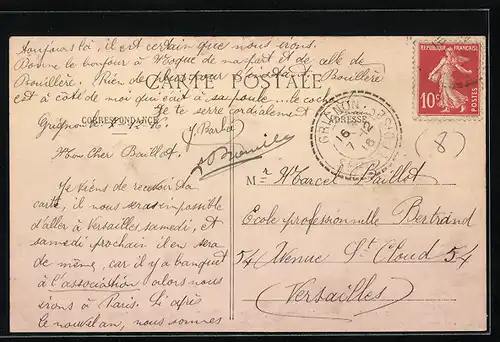 toujours là, il est certain que nous irons.
Donne le bonjour à Hoque de ma part et de celle de
Bouillère. Rien de plus pour Bouillère
est à côté de moi qui cait à sa poule... le coch
Je te serre cordialement
J. Barba
CARTE POSTALE
CORRESPONDANCE
ADRESSE
Grignon le
Mon Cher Baillot.
Je viens de recevoir ta
carte, il nous sera impossible
d'aller à Versailles samedi, et
samedi prochain il en sera
de même, car il y a banquet
à l'association alors nous
irons à Paris. Si après
le nouvel an, nous sommes
RÉPUBLIQUE FRANÇAISE
10c
POSTES
GRIGNON
(8)
Mr Marcel Baillot
Ecole professionnelle Bertrand
54 Avenue St Cloud 54
(Versailles)